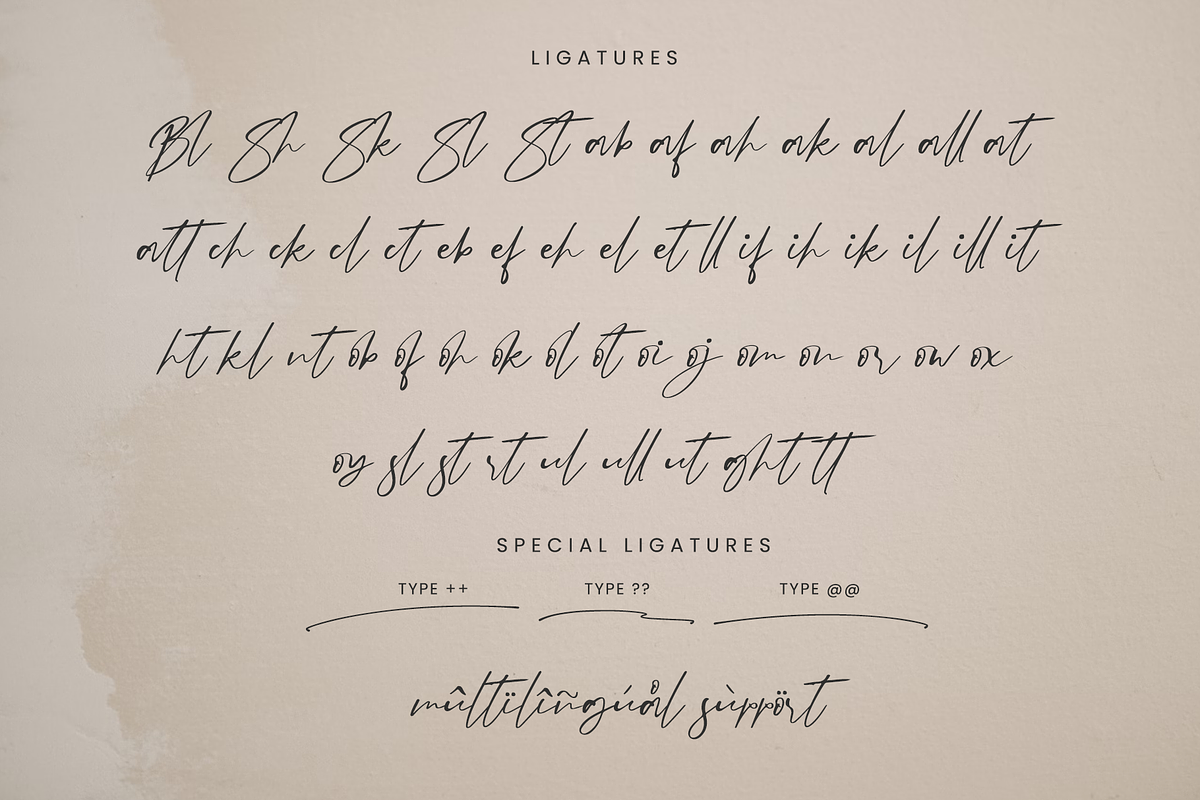 LIGATURES
Bl Sh Sk Sl St ab af ah ak al all at
att ch ck cl ct eb ef eh el et ll if ih ik il ill it
ht kl nt ob of oh ok ol ot oi oj om on or ow ox
oy sl st rt ul ull ut ght tt
SPECIAL LIGATURES
TYPE ++ TYPE ?? TYPE @@
mûltïlîñgúål sùppört